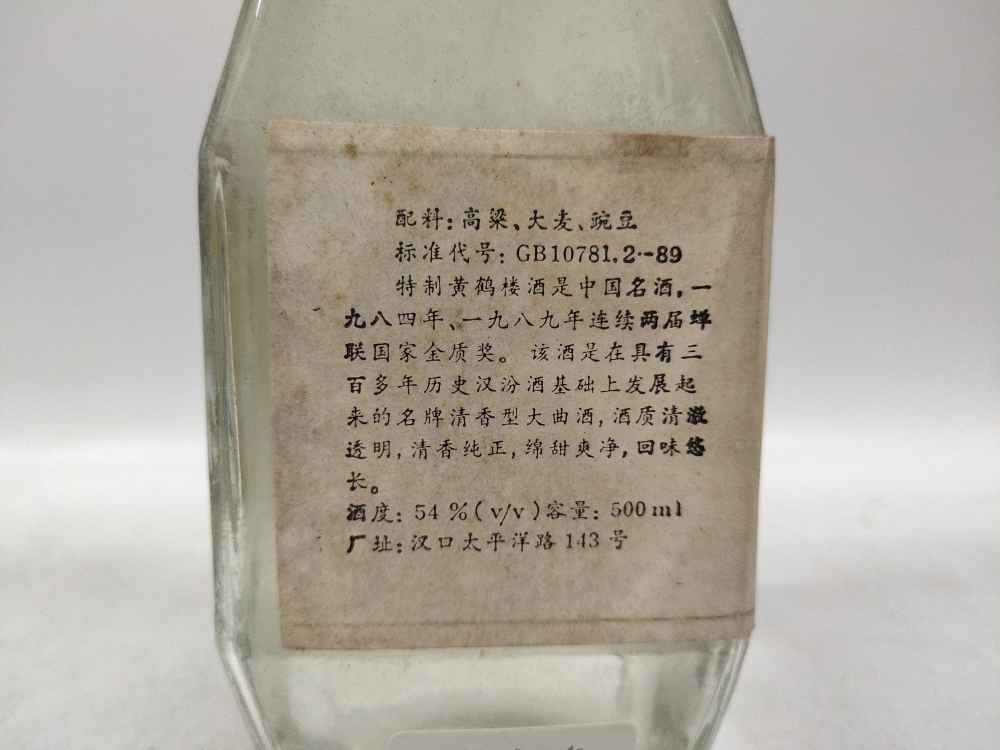 配料：高粱、大麦、豌豆
标准代号：GB10781.2--89
特制黄鹤楼酒是中国名酒，一
九八四年、一九八九年连续两届蝉
联国家金质奖。该酒是在具有三
百多年历史汉汾酒基础上发展起
来的名牌清香型大曲酒，酒质清澈
透明，清香纯正，绵甜爽净，回味悠
长。
酒度：54％（v/v）容量：500ml
厂址：汉口太平洋路143号